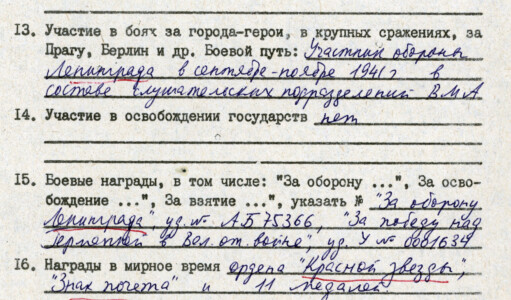 13. Участие в боях за города-герои, в крупных сражениях, за
Прагу, Берлин и др. Боевой путь: Участник обороны
Ленинграда в сентябре-ноябре 1941 г в
составе слушательских подразделений ВМА
14. Участие в освобождении государств нет
15. Боевые награды, в том числе: "За оборону ...", За осво-
бождение ...", За взятие ...", указать № "За оборону
Ленинграда" уд. № АБ 75366, "За победу над
Германией в Вел. от. войне", уд. У № 0001634
16. Награды в мирное время ордена "Красной звезды",
"Знак почета" и 11 медалей.